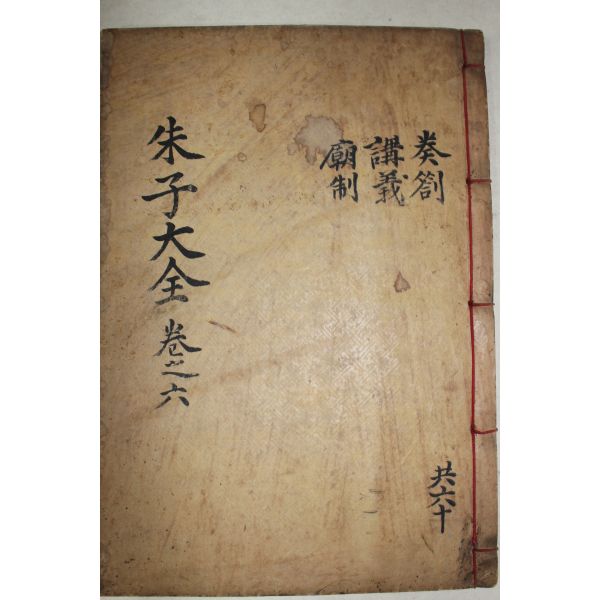 奏劄
講義
廟制
共六十
朱子大全 卷之六